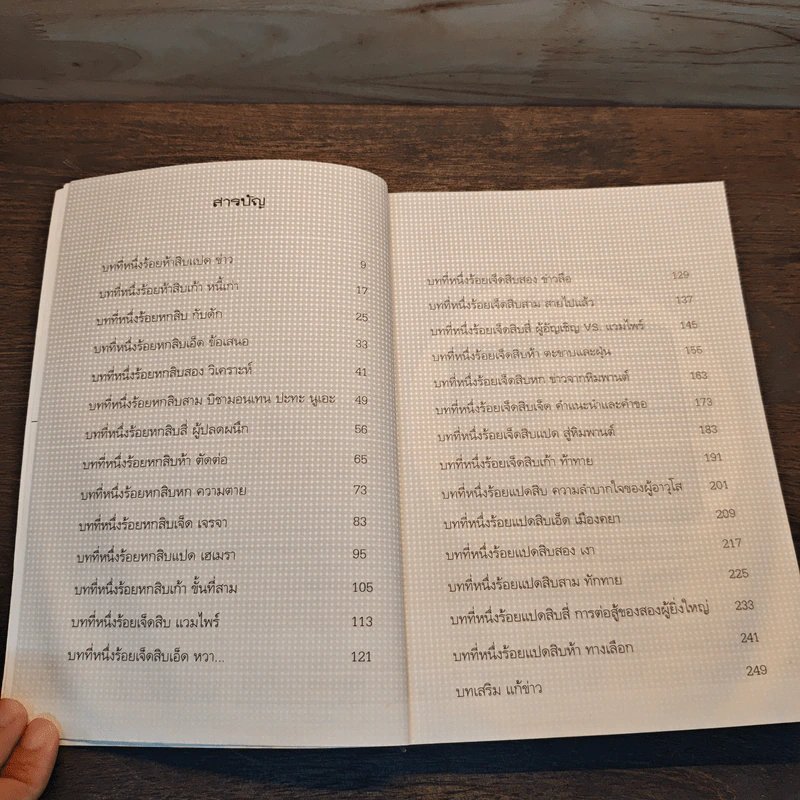 สารบัญ
บทที่หนึ่งร้อยห้าสิบแปด ข่าว 9
บทที่หนึ่งร้อยห้าสิบเก้า หนี้เก่า 17
บทที่หนึ่งร้อยหกสิบ กับดัก 25
บทที่หนึ่งร้อยหกสิบเอ็ด ข้อเสนอ 33
บทที่หนึ่งร้อยหกสิบสอง วิเคราะห์ 41
บทที่หนึ่งร้อยหกสิบสาม บีซามอนเทน ปะทะ นูเอะ 49
บทที่หนึ่งร้อยหกสิบสี่ ผู้ปลดผนึก 56
บทที่หนึ่งร้อยหกสิบห้า ตัดต่อ 65
บทที่หนึ่งร้อยหกสิบหก ความตาย 73
บทที่หนึ่งร้อยหกสิบเจ็ด เจรจา 83
บทที่หนึ่งร้อยหกสิบแปด เฮเมรา 95
บทที่หนึ่งร้อยหกสิบเก้า ขั้นที่สาม 105
บทที่หนึ่งร้อยเจ็ดสิบ แวมไพร์ 113
บทที่หนึ่งร้อยเจ็ดสิบเอ็ด หวา... 121
บทที่หนึ่งร้อยเจ็ดสิบสอง ข่าวลือ 129
บทที่หนึ่งร้อยเจ็ดสิบสาม สายไปแล้ว 137
บทที่หนึ่งร้อยเจ็ดสิบสี่ ผู้อัญเชิญ VS. แวมไพร์ 145
บทที่หนึ่งร้อยเจ็ดสิบห้า ตะขาบและฝุ่น 155
บทที่หนึ่งร้อยเจ็ดสิบหก ข่าวจากหิมพานต์ 163
บทที่หนึ่งร้อยเจ็ดสิบเจ็ด คำแนะนำและคำขอ 173
บทที่หนึ่งร้อยเจ็ดสิบแปด สู่หิมพานต์ 183
บทที่หนึ่งร้อยเจ็ดสิบเก้า ท้าทาย 191
บทที่หนึ่งร้อยแปดสิบ ความลำบากใจของผู้อาวุโส 201
บทที่หนึ่งร้อยแปดสิบเอ็ด เมืองคยา 209
บทที่หนึ่งร้อยแปดสิบสอง เงา 217
บทที่หนึ่งร้อยแปดสิบสาม ทักทาย 225
บทที่หนึ่งร้อยแปดสิบสี่ การต่อสู้ของสองผู้ยิ่งใหญ่ 233
บทที่หนึ่งร้อยแปดสิบห้า ทางเลือก 241
บทเสริม แก้ข่าว 249